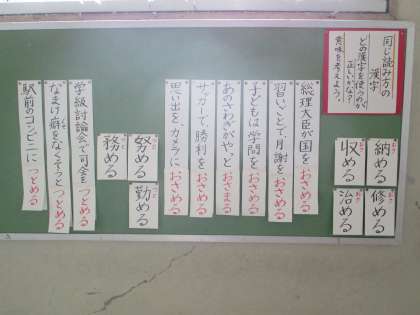 同じ読み方の
漢字
どの漢字を使うのが
正しいかな？
意味を考えよう。
納める
おさ
修める
おさ
収める
おさ
治める
おさ
総理大臣が国をおさめる
習いごとで、月謝をおさめる
子どもは学問をおさめる
あのさわぎがやっとおさまる
サッカーで、勝利をおさめる
思い出を、カメラにおさめる
努める
つと
勤める
つと
務める
つと
学級討論会で司会をつとめる
なまけ癖をなくそうとつとめる
駅前のコンビニにつとめる